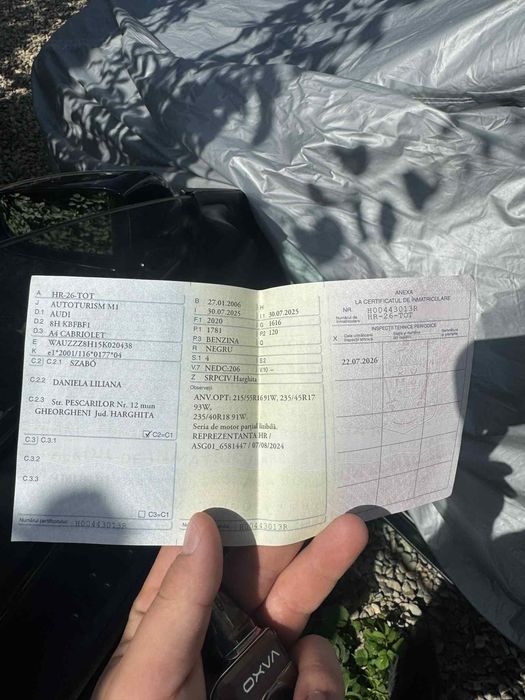 A HR-26-TOT
J AUTOTURISM M1
D.1 AUDI
D.2 8H KBFBF1
D.3 A4 CABRIOLET
E WAUZZZ8H15K020438
K e1*2001/116*0177*04
C.2 C.2.1 SZABÓ
C.2.2 DANIELA LILIANA
C.2.3 Str. PESCARILOR Nr. 12 mun
GHEORGHENI Jud. HARGHITA
C2=C1
C.3 C.3.1
C.3.2
C.3.3
C3=C1
Numărul certificatului H00443013R
B 27.01.2006 H
I 30.07.2025 I.1 30.07.2025
F.1 2020 G 1616
P.1 1781 P.2 120
P.3 BENZINA Q
R NEGRU
S.1 4 S.2
V.7 NEDC:206 V.10 -
Z SRPCIV Harghita
Observații
ANV.OPT: 215/55R1691W, 235/45R17
93W,
235/40R18 91W.
Seria de motor parțial lizibilă.
REPREZENTANTA HR /
ASG01_6581447 / 07/08/2024
H00443013R
ANEXA
LA CERTIFICATUL DE ÎNMATRICULARE
NR. H00443013R
Numărul de
înmatriculare HR-26-TOT
INSPECȚII TEHNICE PERIODICE
X
22.07.2026
VAXO